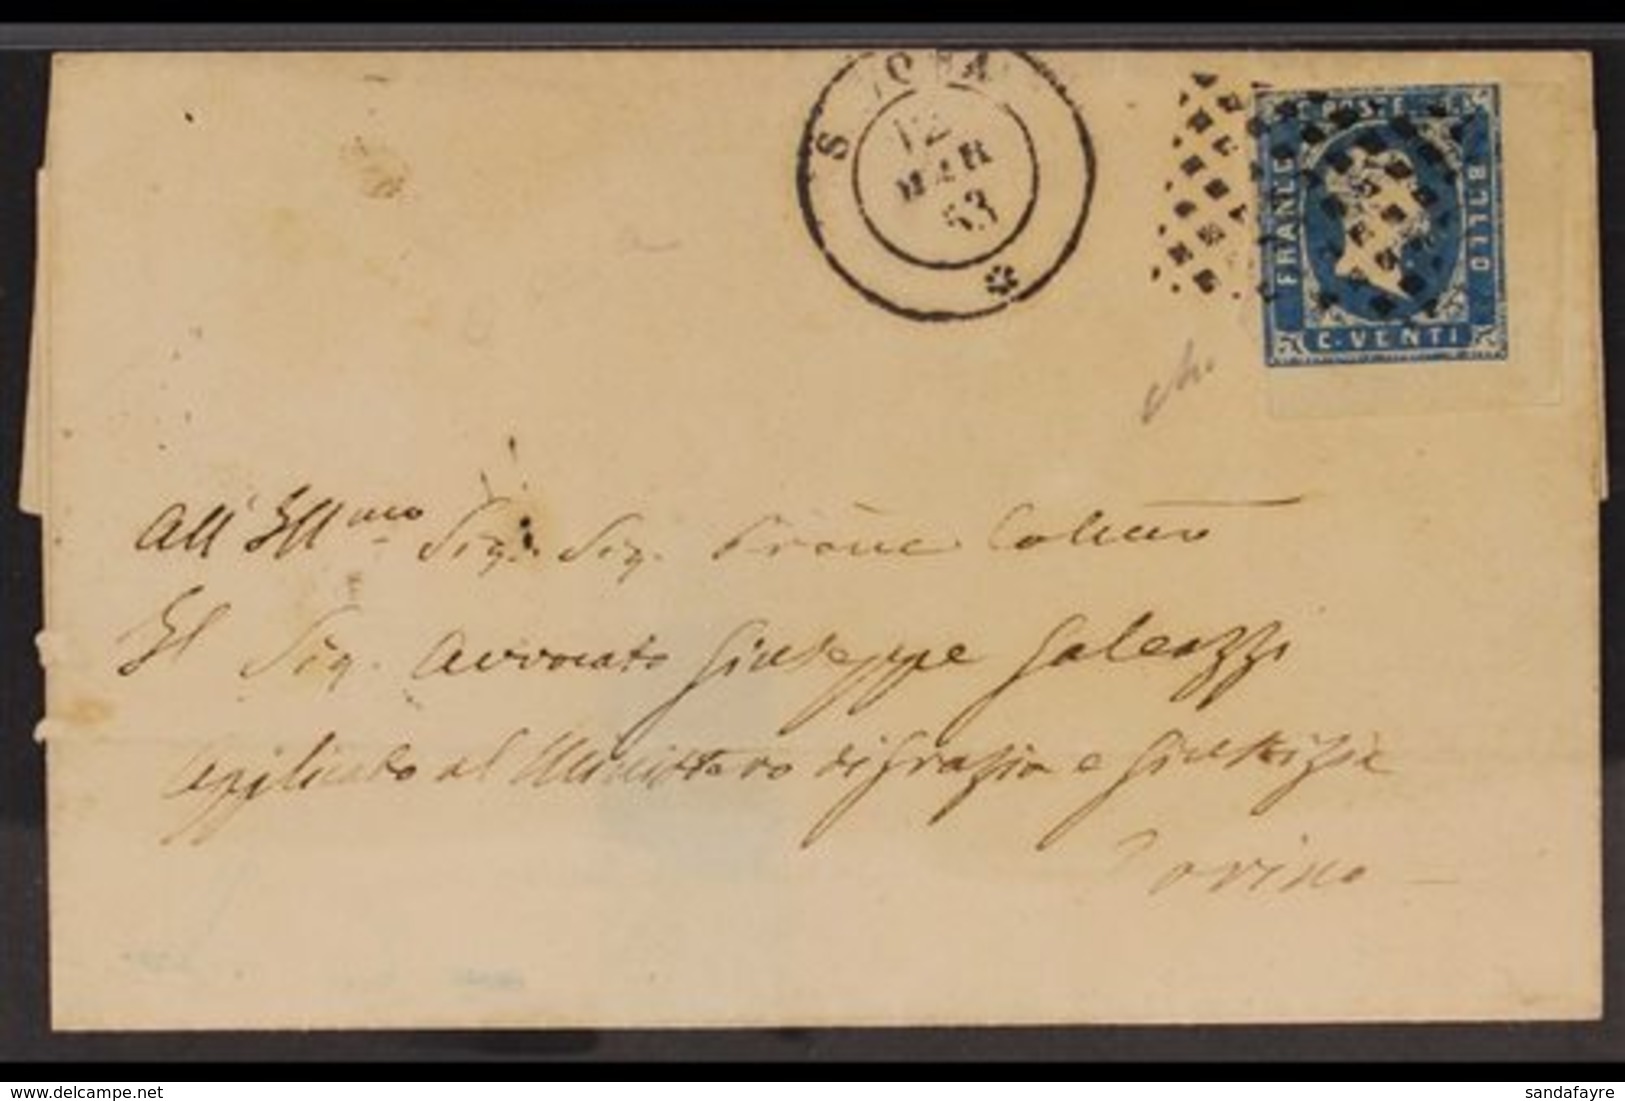 12
MAR
53
POSTE
FRANCO
BOLLO
C. VENTI
All' Illmo Sig. Sig.
Il Sig. Avvocato Giuseppe Galeazzi
Applicato al Ministero di Grazia e Giustizia
Torino
© delcampe.net
sandafayre